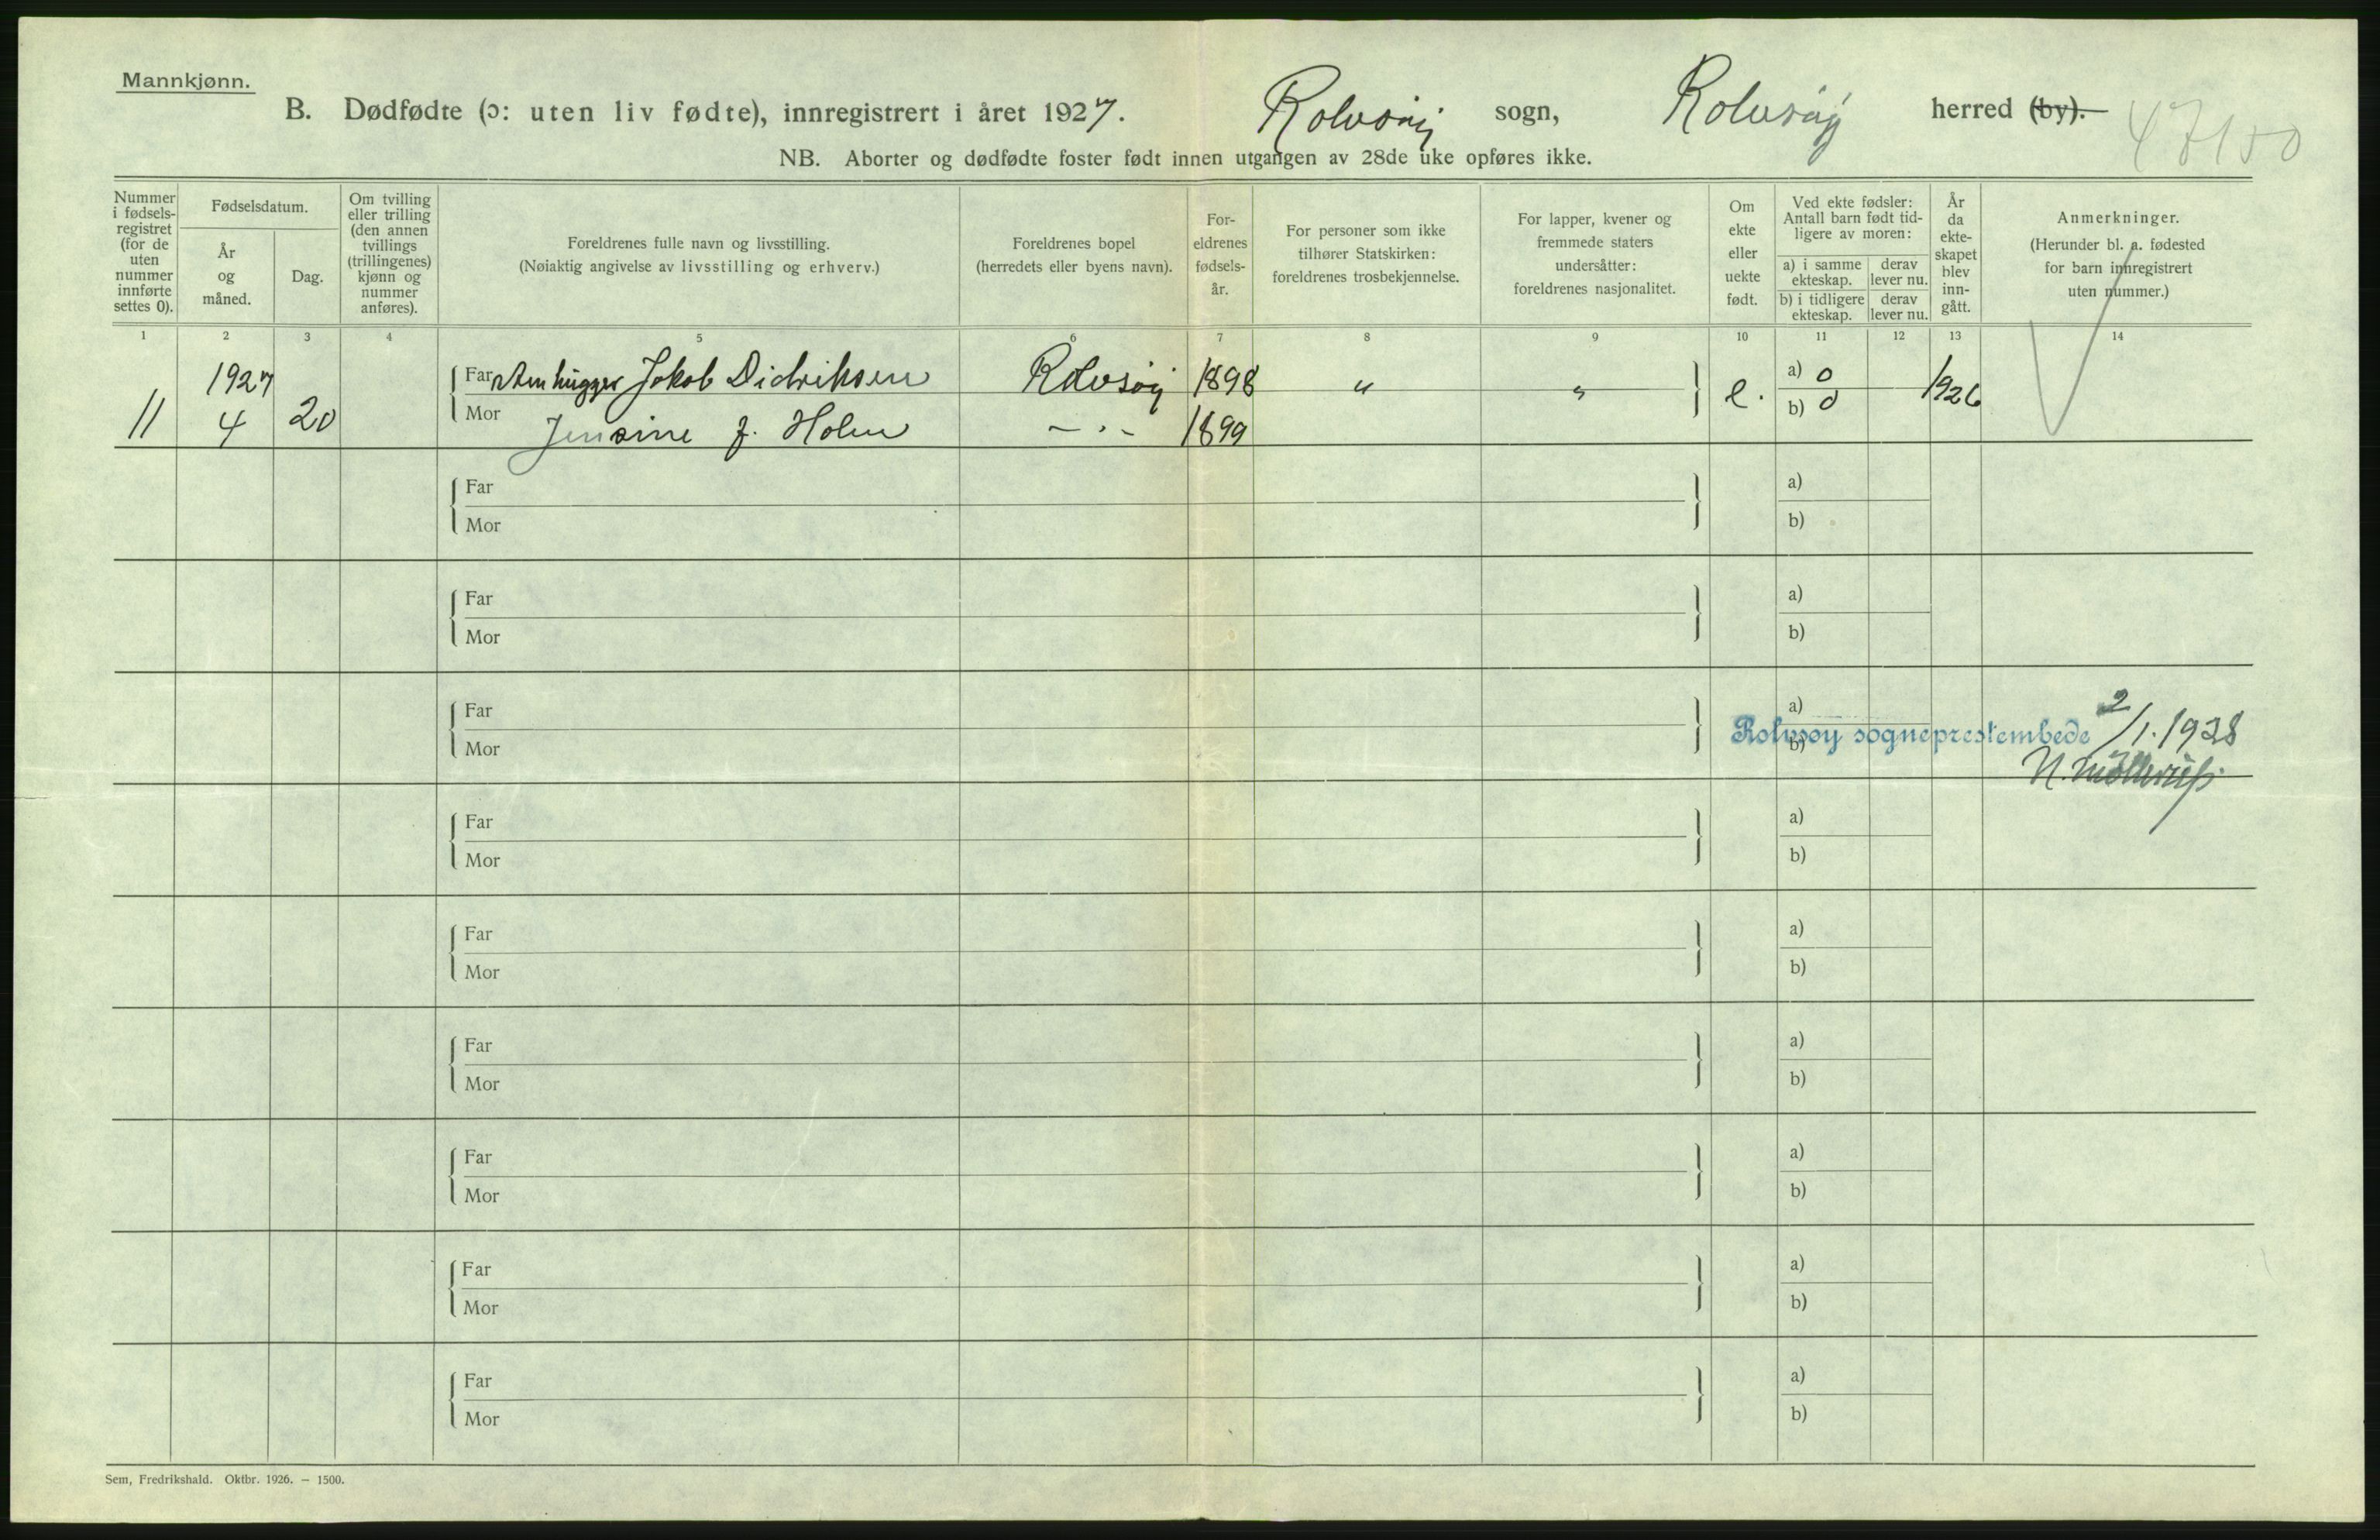 Mannkjønn.
B. Dødfødte (ɔ: uten liv fødte), innregistrert i året 1927. Rolvsøy sogn, Rolvsøy herred (by).
NB. Aborter og dødfødte foster født innen utgangen av 28de uke opføres ikke.
Nummer i fødsels-registret (for de uten nummer innførte settes 0).
Fødselsdatum.
År og måned.
Dag.
Om tvilling eller trilling (den annen tvillings (trillingenes) kjønn og nummer anføres).
Foreldrenes fulle navn og livsstilling.
(Nøiaktig angivelse av livsstilling og erhverv.)
Foreldrenes bopel (herredets eller byens navn).
For-eldrenes fødsels-år.
For personer som ikke tilhører Statskirken: foreldrenes trosbekjennelse.
For lapper, kvener og fremmede staters undersåtter: foreldrenes nasjonalitet.
Om ekte eller uekte født.
Ved ekte fødsler: Antall barn født tid-ligere av moren:
a) i samme ekteskap. derav lever nu.
b) i tidligere ekteskap. derav lever nu.
År da ekte-skapet blev inn-gått.
Anmerkninger.
(Herunder bl. a. fødested for barn innregistrert uten nummer.)
1 2 3 4 5 6 7 8 9 10 11 12 13 14
1927
Far Stenhugger Jakob Didriksen Rolvsøy 1898 " " e. a) 0 1926
11 4 20 Mor Jensine f. Holm — " — 1899 b) 0
Far a)
Mor b)
Far a)
Mor b)
Far a)
Mor b)
Rolvsøy sogneprestembede 2/1. 1928
N. Møllerup.
Far a)
Mor b)
Far a)
Mor b)
Far a)
Mor b)
Far a)
Mor b)
Far a)
Mor b)
Far a)
Mor b)
Sem, Fredrikshald. Oktbr. 1926. — 1500.